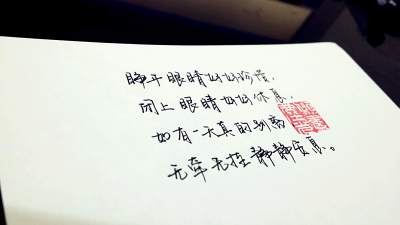 睁开眼睛好好珍惜，
闭上眼睛好好休息，
如有一天真的别离
无牵无挂静静安息。